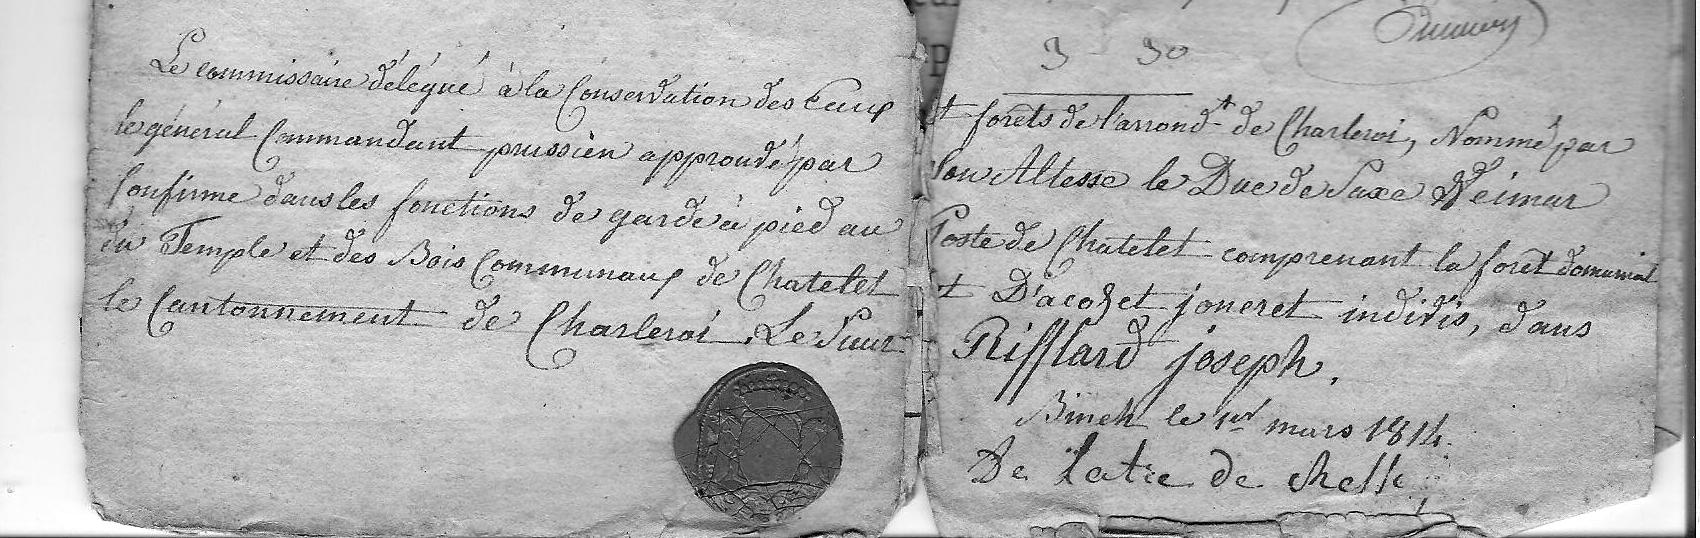 3 30
Le commissaire délégué à la Conservation des Eaux
et forêts de l'arrond.t de Charleroi, Nommé par
le général Commandant prussien approuvé par
Son Altesse le Duc de Saxe Weimar
Confirme dans les fonctions de garde à pied au
Poste de Chatelet comprenant la forêt domanial
du Temple et des Bois Communaux de Chatelet
et D'acoz et joneret indivis, dans
le Cantonnement de Charleroi, Le Sieur
Rifflard joseph.
Binch le 1er mars 1814.
De Latre de